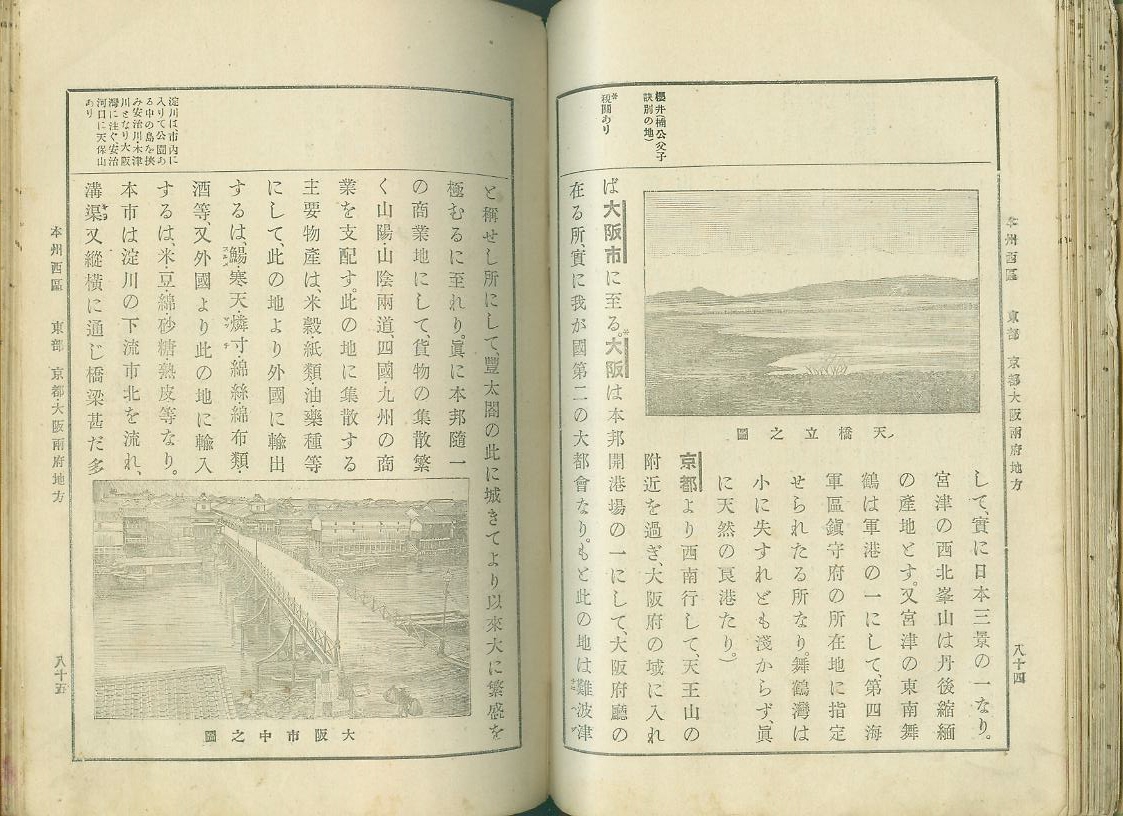 本州西區 東部 京都大阪兩府地方
八十四
櫻井楠公父子
訣別の地)
*稅關あり
して、實に日本三景の一なり。
宮津の西北峯山は丹後縮緬
の產地とす。又宮津の東南舞
鶴は軍港の一にして、第四海
軍區鎭守府の所在地に指定
せられたる所なり。舞鶴灣は
小に失すれども淺からず、眞
に天然の良港たり。)
天橋立之圖
京都より西南行して、天王山の
附近を過ぎ、大阪府の域に入れ
ば大阪市に至る。*大阪は本邦開港場の一にして、大阪府廳の
在る所、實に我が國第二の大都會なり。もと此の地は難波津
淀川は市内に
入りて公園あ
る中の島を挾
み安治川木津
川となり大阪
灣に注ぐ安治
河口に天保山
あり
と稱せし所にして、豐太閤の此に城きてより以來大に繁盛を
極むるに至れり。眞に本邦隨一
の商業地にして貨物の集散繁
く山陽山陰兩道、四國・九州の商
業を支配す。此の地に集散する
主要物產は、米穀紙類・油・藥種等
にして、此の地より外國に輸出
するは、鯣寒天・燐寸・綿絲・綿布類・
酒等、又外國より此の地に輸入
するは、米・豆・綿砂糖・熟皮等なり。
本市は淀川の下流市北を流れ、
溝渠又縱橫に通じ橋梁甚だ多
大阪市中之圖
本州西區 東部 京都・大阪兩府地方
八十五